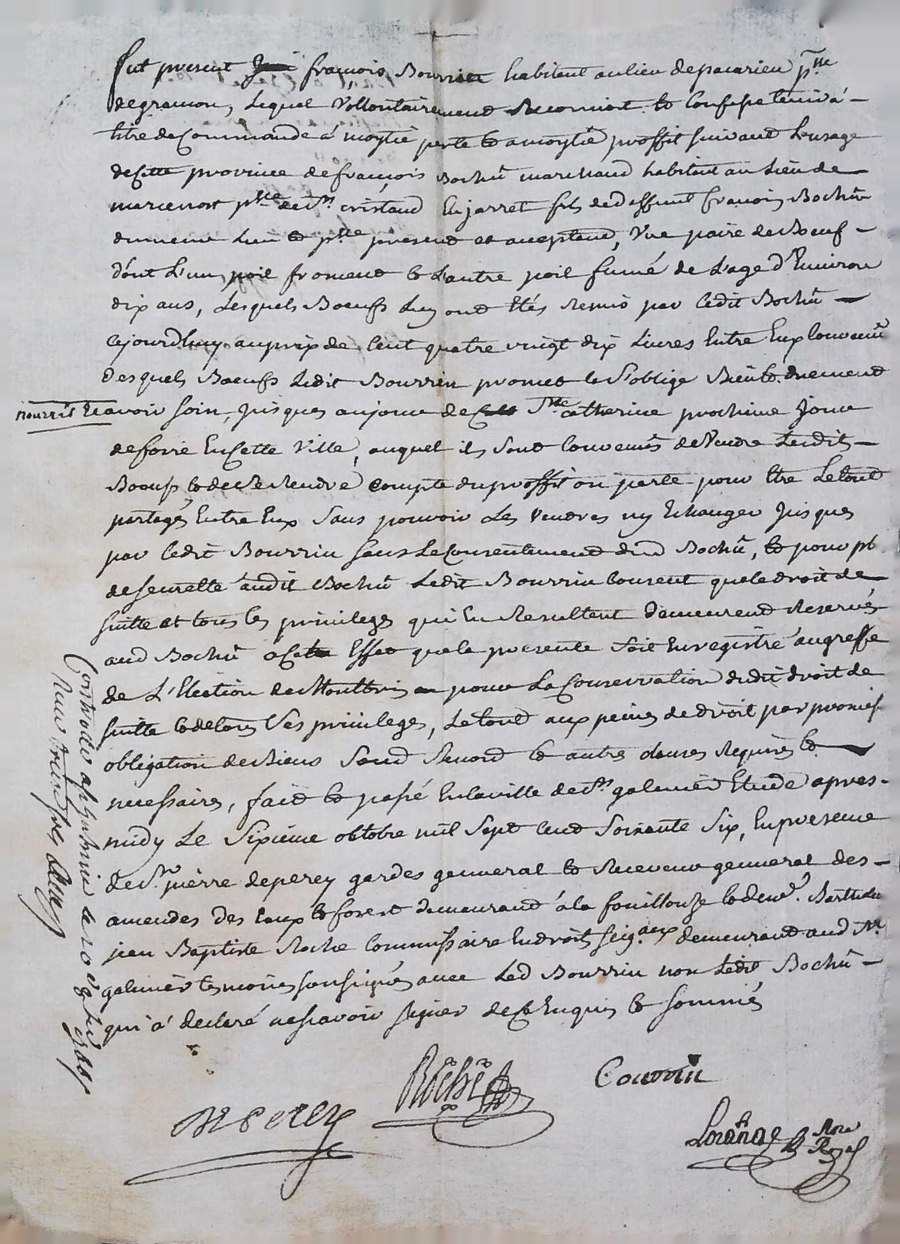 fut present françois Bourrin habitant au lieu de pacarieu p.sse
de gramon, Lequel Vollontairement Reconnoist & confesse tenir a
titre de Commande a moytié perte & a moytié proffit suivant L'usage
de Cette province de françois Bochû marchand habitant au Lieu de
marcenost p.sse de St. cristaud En jarret fils de deffunt françois Bochû
du meme Lieu & p.sse present et acceptant, Une paire de Boeuf
dont L'un poil froment & L'autre poil fumé de L'age d'Environ
dix ans, Lesquels Boeufs Luy ont Etés Remis par Ledit Bochû
cejourdhuy au prix de Cent quatre vingt dix Livres Entre Eux Convenû
desquels Boeufs Ledit Bourrin promet & s'oblige Bien & duement
nourrir & avoir soin, jusques au jour de Ste Catherine prochaine jour
de foire En Cette Ville, auquel ils sont Convenûs de Vendre Lesdits
Boeufs & de Se Rendre Compte du proffit ou perte pour Etre Le tout
partagés Entre Eux Sans pouvoir Les Vendres ny Echanger jusques
par Ledit Bourrin sans Le Consentement dud Bochû, & pour pl
de seurette audit Bochû Ledit Bourrin Consent que le droit de
suitte et tous les privileges qui En Resultent demeurent Reservés
aud Bochû a Cet Effet que la presente soit Enregistré au greffe
de L'Election de Montbrison pour La Conservation dudit droit de
suitte & de tous Ses privileges, Le tout aux peines de droit par promes
obligation de Biens Renond & autres clauses Requises &
necessaires, fait & passé En la ville de St. galmier Etude apres
midy Le Sixieme octobre mil Sept cent Soixante Six, En presence
de Sr. pierre deperey gardes general & Receveur general des
amendes des Eaux & forest demeurant a la fouillouze &
jean Baptiste Roche Commissaire En droits seig.aux demeurant aud St.
galmier temoins soussignés avec Led Bourrin non Ledit Bochû
qui a declaré ne scavoir signer de Ce Enquis & sommés
Deperey
Roche
Bourrin
Not.re
Royal